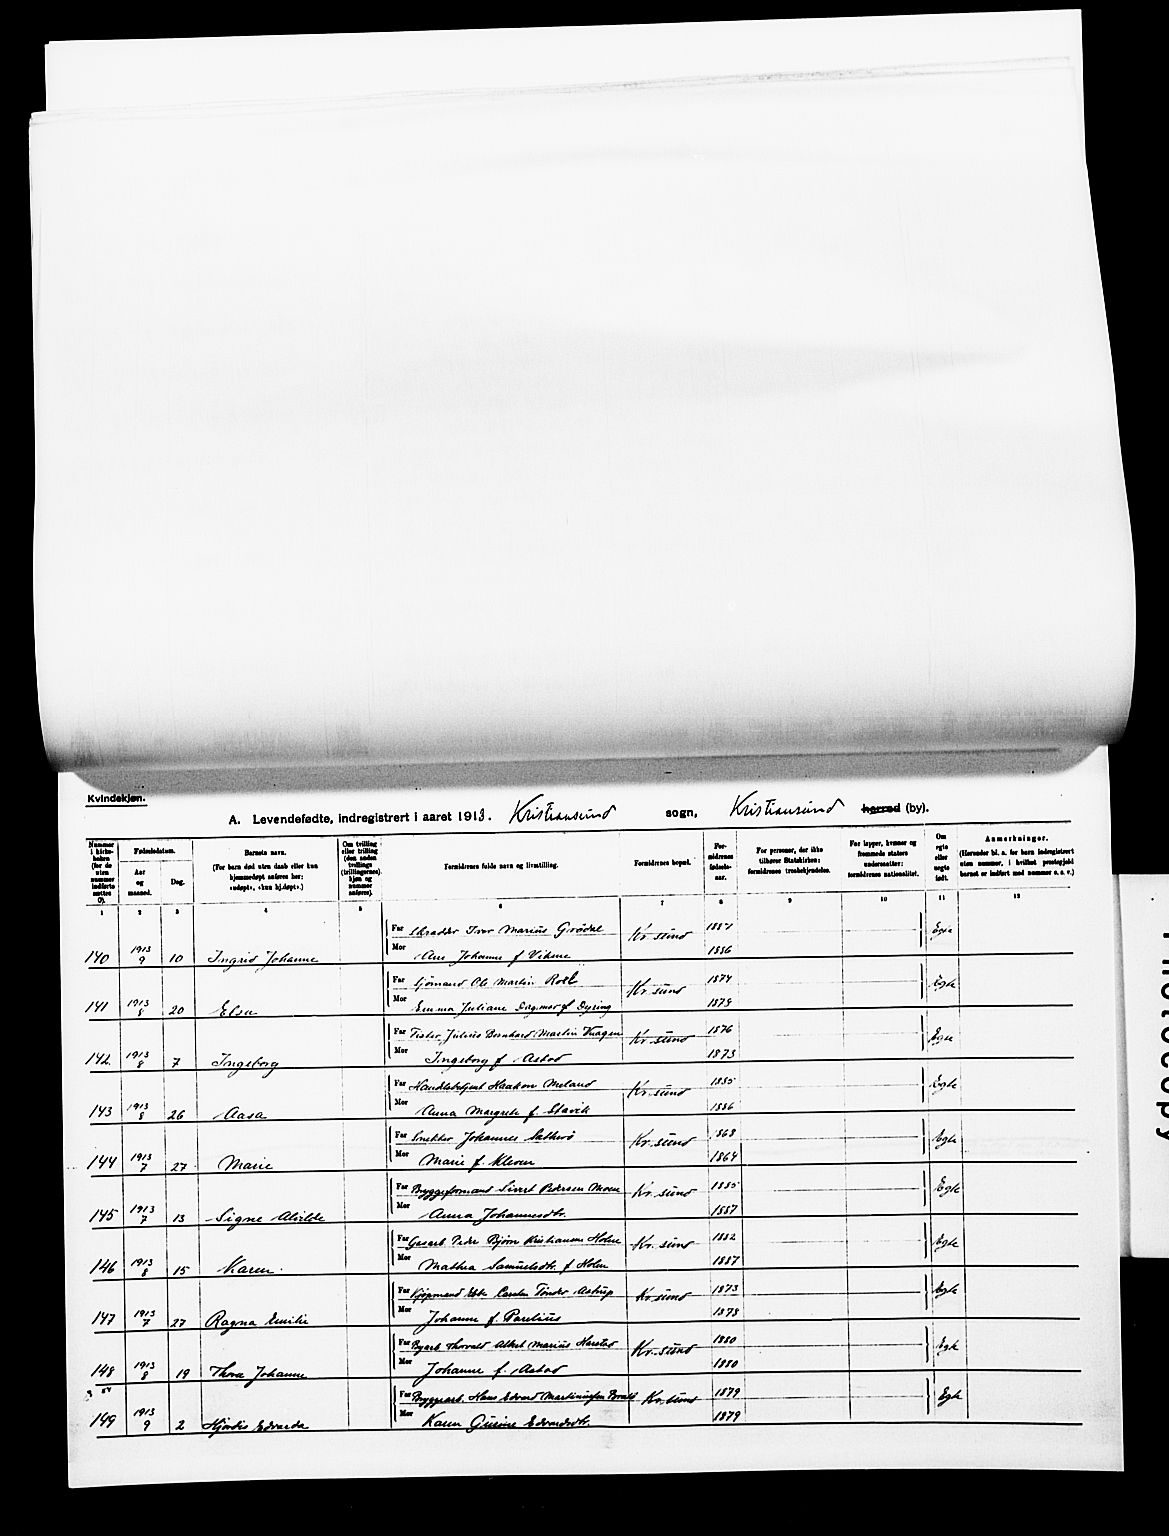 Kvindekjøn.
A. Levendefødte, indregistrert i aaret 1913. Kristiansund sogn, Kristiansund herred (by).
Nummer i kirkeboken (for de uten nummer indførte sættes 0).
Fødselsdatum.
Aar og maaned.
Dag.
Barnets navn.
(For barn død uten daab eller kun hjemmedøpt anføres her: «udøpt», «kun hj.døpt».)
Om tvilling eller trilling (den anden tvillings (trillingernes) kjøn og nummer anføres).
Forældrenes fulde navn og livsstilling.
Forældrenes bopæl.
Forældrenes fødselsaar.
For personer, der ikke tilhører Statskirken: forældrenes trosbekjendelse.
For lapper, kvæner og fremmede staters undersaatter: forældrenes nationalitet.
Om egte eller uegte født.
Anmerkninger.
(Herunder bl. a. for barn indregistrert uten nummer, i hvilket prestegjeld barnet er indført med nummer o. s. v.)
1 2 3 4 5 6 7 8 9 10 11 12
Far Skrædder Iver Marius Grødal Kr.sund Egte
140 1913 9 10 Ingrid Johanne Mor Ane Johanne f. Vikene 1886
Far Sjømand Ole Martin Kr.sund 1874 Egte
141 1913 8 20 Elsa Mor Emma Juliane Dagmar f. Dyring 1879
Far Fisker Julius Bernhard Martin Knagen Kr.sund 1876 Egte
142 1913 8 7 Ingeborg Mor Ingeborg f. Astad 1873
Far Handelsbetjent Haakon Meland Kr.sund 1885 Egte
143 1913 8 26 Aasa Mor Anna Margrete f. Stavik 1886
Far Johannes Kr.sund 1868 Egte
144 1913 7 27 Marie Mor Marie f. Kleven 1864
Far Byggeformand Sivert Pedersen Moen Kr.sund 1885 Egte
145 1913 7 13 Signe Alvilde Mor Anna Johannesdtr. 1887
Far Gasarb Peder Bjørn Kristiansen Holm Kr.sund 1882 Egte
146 1913 8 15 Karen Mor Mathea Samuelsdtr. f. Holm 1887
Far Kjøpmand Ebbe Carsten Tønder Astrup Kr.sund 1873 Egte
147 1913 7 27 Ragna Emilie Mor Johanne f. Parelius 1878
Far Byarb Thorvald Albert Marius Harstad Kr.sund 1880 Egte
148 1913 8 19 Thora Johanne Mor Johanne f. Astad 1880
Far Byggearb. Hans Edvard Martinussen Kr.sund 1879 Egte
149 1913 9 2 Hjørdis Edvarda Mor Karen Gurine Edvardsdtr. 1879
Photocopy